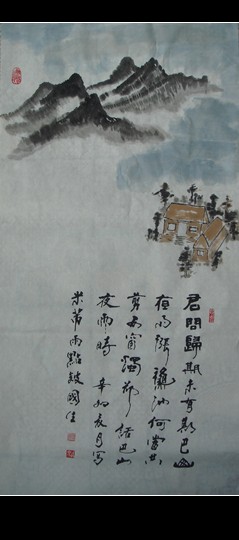 君問歸期未有期巴山
夜雨漲龝池何當共
剪西窗燭却話巴山
夜雨時 辛卯月写
米芾雨點皴國